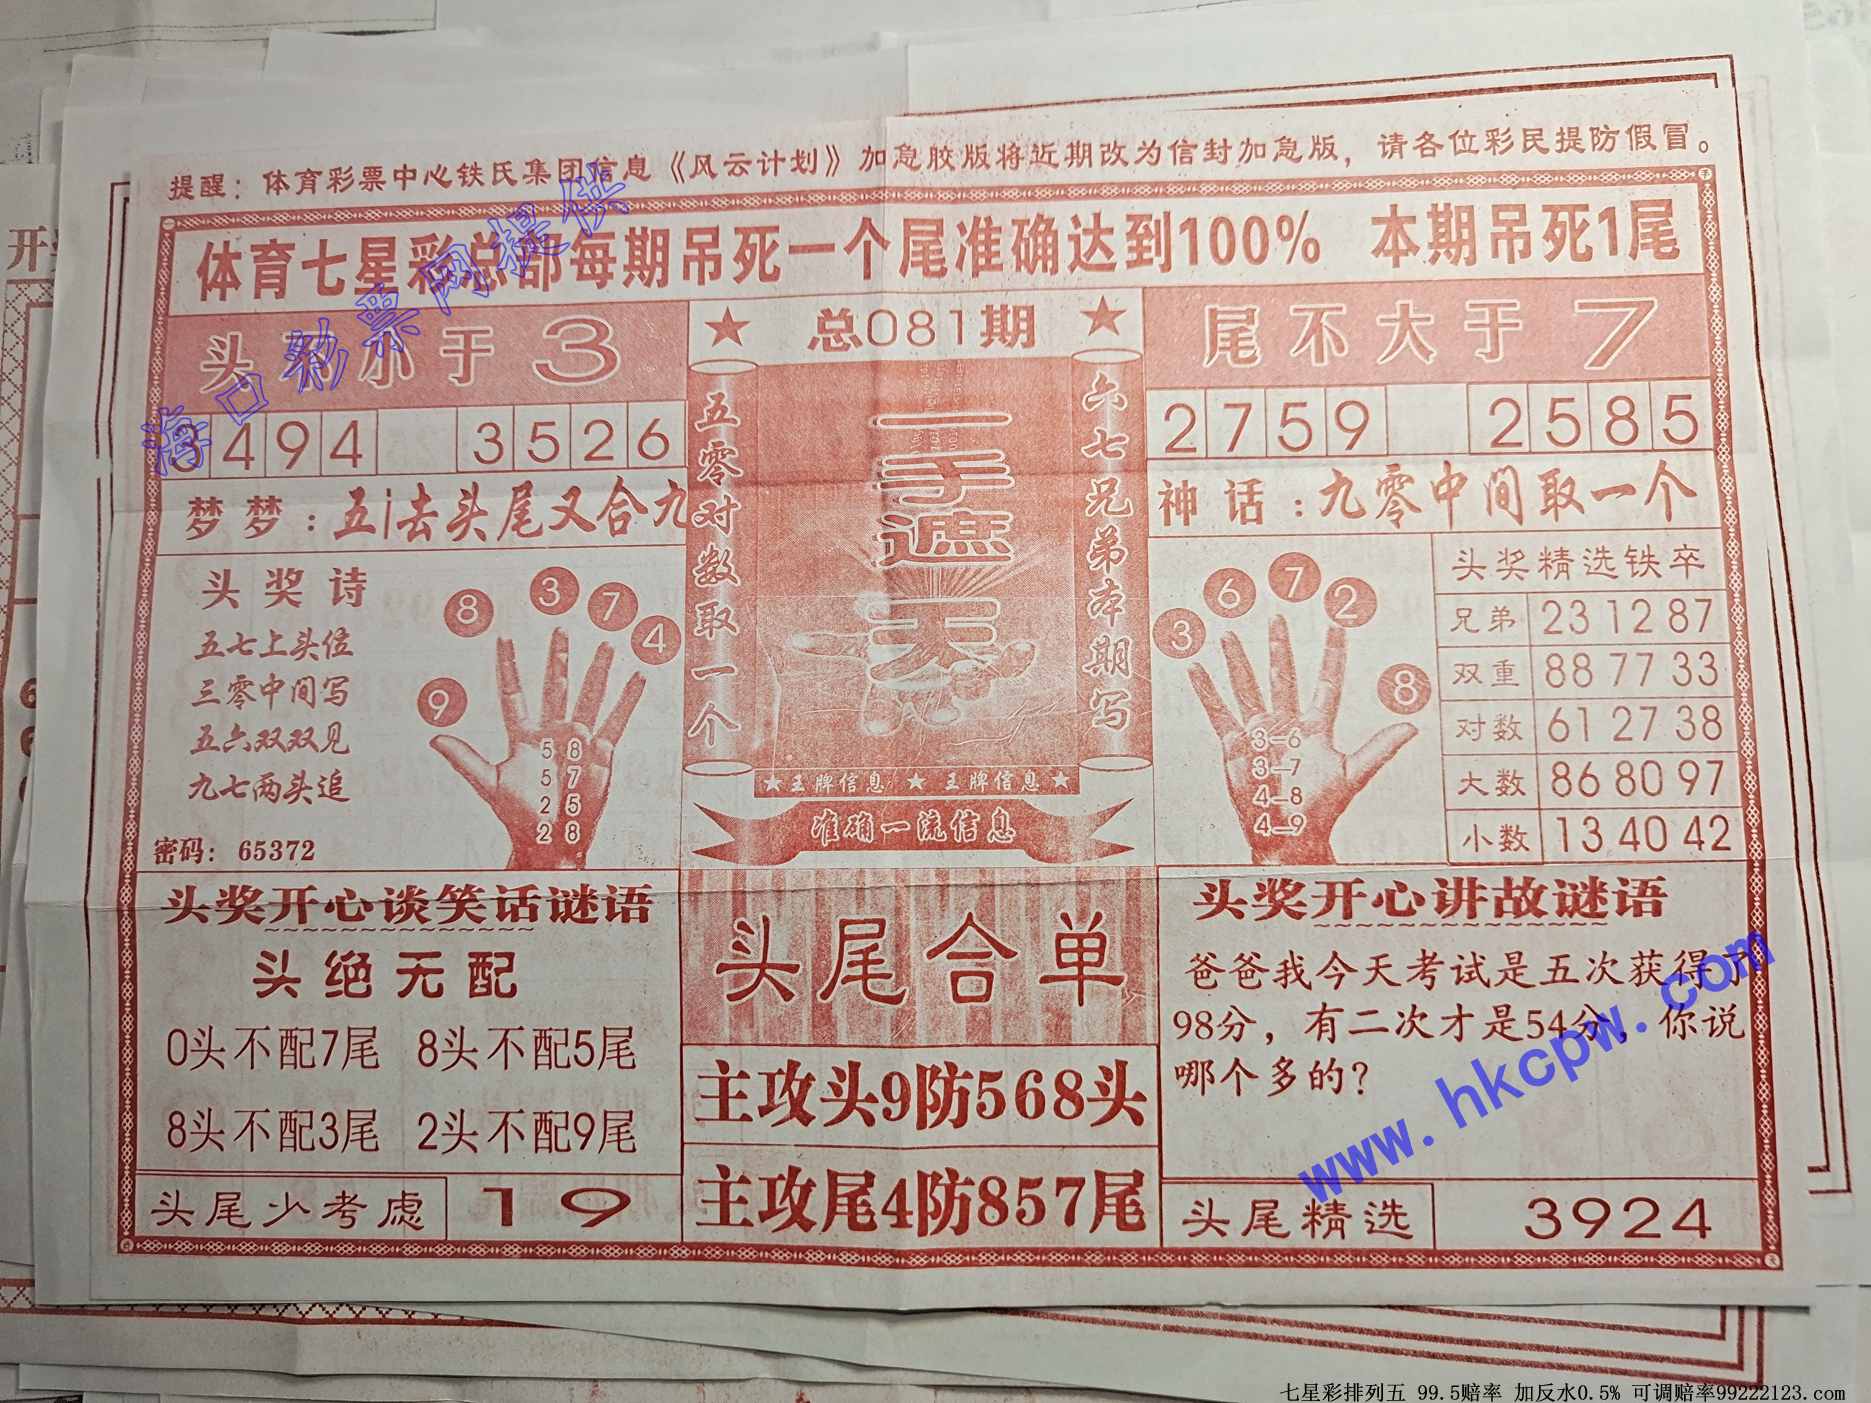 提醒：体育彩票中心铁氏集团信息《风云计划》加急胶版将近期改为信封加急版，请各位彩民提防假冒。
体育七星彩总部每期吊死一个尾准确达到100% 本期吊死1尾
头不小于3
总081期
尾不大于7
3494 3526
2759 2585
梦梦：五i去头尾又合九
神话：九零中间取一个
五零对数取一个
一手遮天
六七兄弟本期写
头奖诗
五七上头位
三零中间写
五六双双见
九七两头追
密码：65372
9 8 3 7 4
5 8
5 7
2 5
2 8
★王牌信息 ★ 王牌信息★
准确一流信息
3 6 7 2 8
3-6
3-7
4-8
4-9
头奖精选铁卒
兄弟 23 12 87
双重 88 77 33
对数 61 27 38
大数 86 80 97
小数 13 40 42
头奖开心谈笑话谜语
头绝无配
0头不配7尾 8头不配5尾
8头不配3尾 2头不配9尾
头尾少考虑 19
头尾合单
主攻头9防568头
主攻尾4防857尾
头奖开心讲故谜语
爸爸我今天考试是五次获得了
98分，有二次才是54分，你说
哪个多的？
头尾精选 3924
海口彩票网提供
www.hkcpw.com
七星彩排列五 99.5赔率 加反水0.5% 可调赔率99222123.com